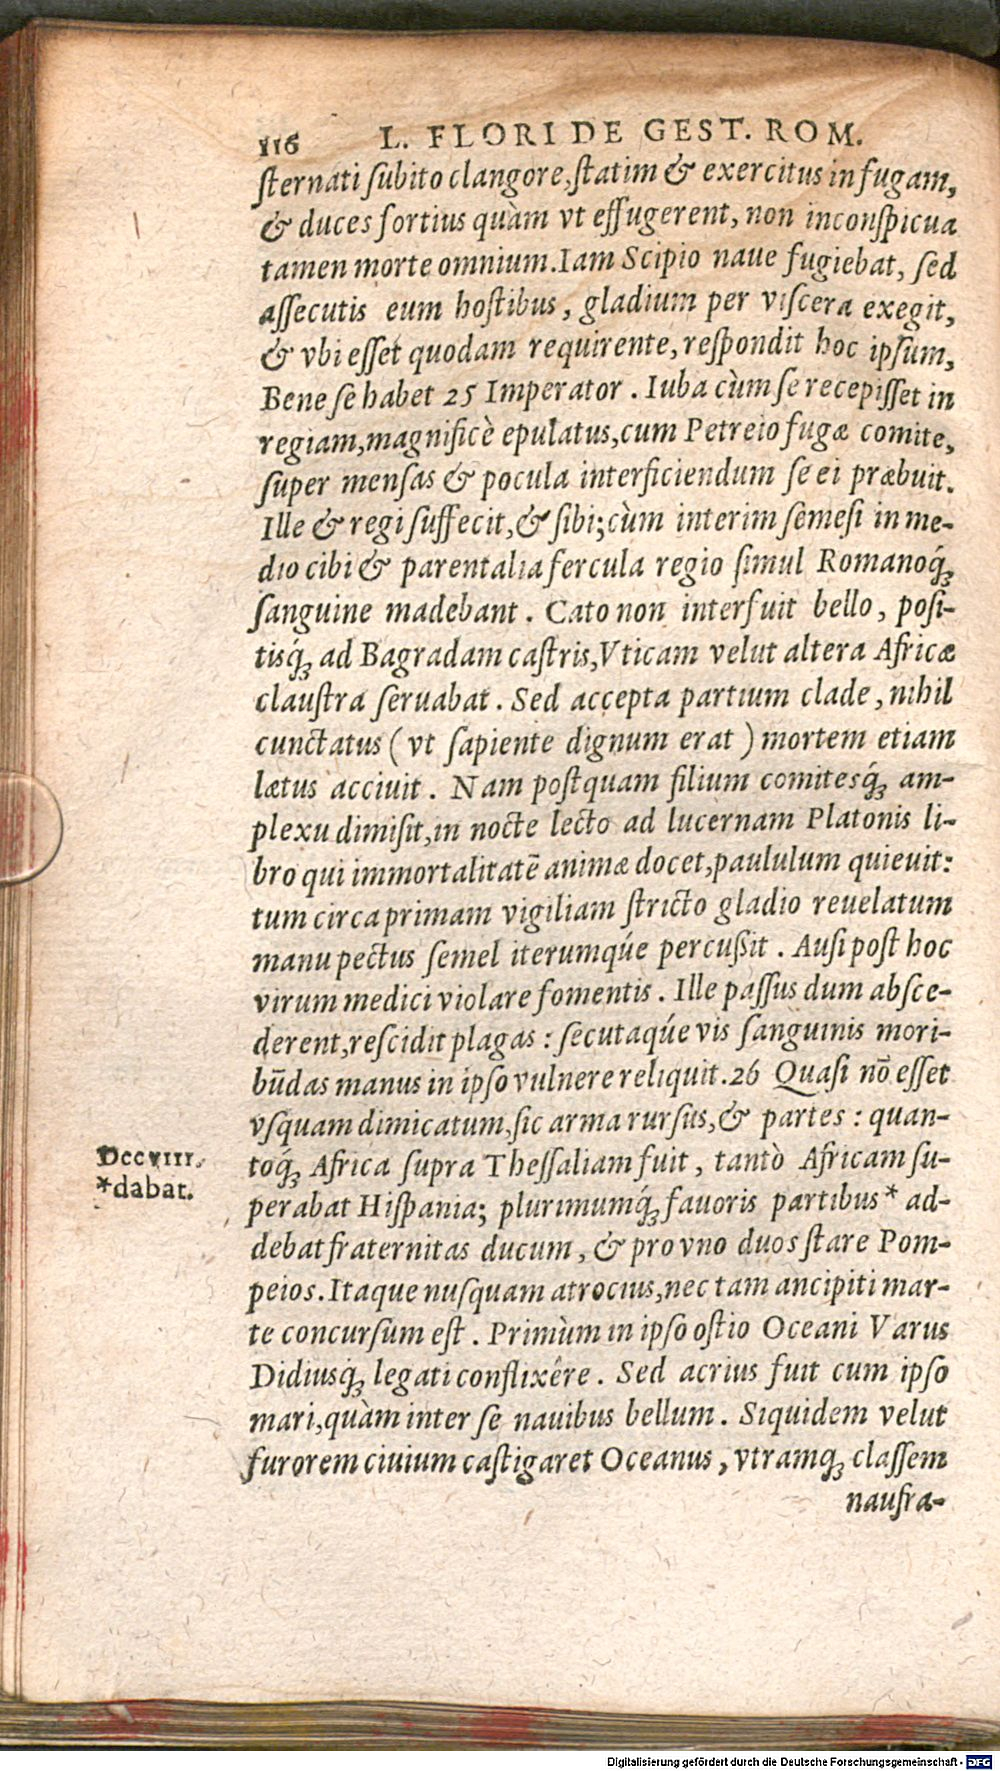 116 L. FLORI DE GEST. ROM.
sternati subito clangore, statim & exercitus in fugam,
& duces fortius quàm vt effugerent, non inconspicua
tamen morte omnium. Iam Scipio naue fugiebat, sed
assecutis eum hostibus, gladium per viscera exegit,
& vbi esset quodam requirente, respondit hoc ipsum,
Bene se habet 25 Imperator. Iuba cùm se recepisset in
regiam, magnificè epulatus, cum Petreio fugæ comite,
super mensas & pocula interficiendum se ei præbuit.
Ille & regi suffecit, & sibi; cùm interim semesi in me-
dio cibi & parentalia fercula regio simul Romanoq́;
sanguine madebant. Cato non interfuit bello, posi-
tisq́; ad Bagradam castris, Vticam velut altera Africæ
claustra seruabat. Sed accepta partium clade, nihil
cunctatus (vt sapiente dignum erat) mortem etiam
lætus acciuit. Nam postquam filium comitesq́; am-
plexu dimisit, in nocte lecto ad lucernam Platonis li-
bro qui immortalitatē animæ docet, paululum quieuit:
tum circa primam vigiliam stricto gladio reuelatum
manu pectus semel iterumqúe percußit. Ausi post hoc
virum medici violare fomentis. Ille passus dum absce-
derent, rescidit plagas: secutaqúe vis sanguinis mori-
būdas manus in ipso vulnere reliquit. 26 Quasi nō esset
vsquam dimicatum, sic arma rursus, & partes: quan-
toq́; Africa supra Thessaliam fuit, tantò Africam su-
perabat Hispania; plurimumq́; fauoris partibus* ad-
debat fraternitas ducum, & pro vno duos stare Pom-
peios. Itaque nusquam atrocius, nec tam ancipiti mar-
te concursum est. Primùm in ipso ostio Oceani Varus
Didiusq́; legati conflixêre. Sed acrius fuit cum ipso
mari, quàm inter se nauibus bellum. Siquidem velut
furorem ciuium castigaret Oceanus, vtramq; classem
naufra-
DCCVIII.
*dabat.
Digitalisierung gefördert durch die Deutsche Forschungsgemeinschaft - DFG